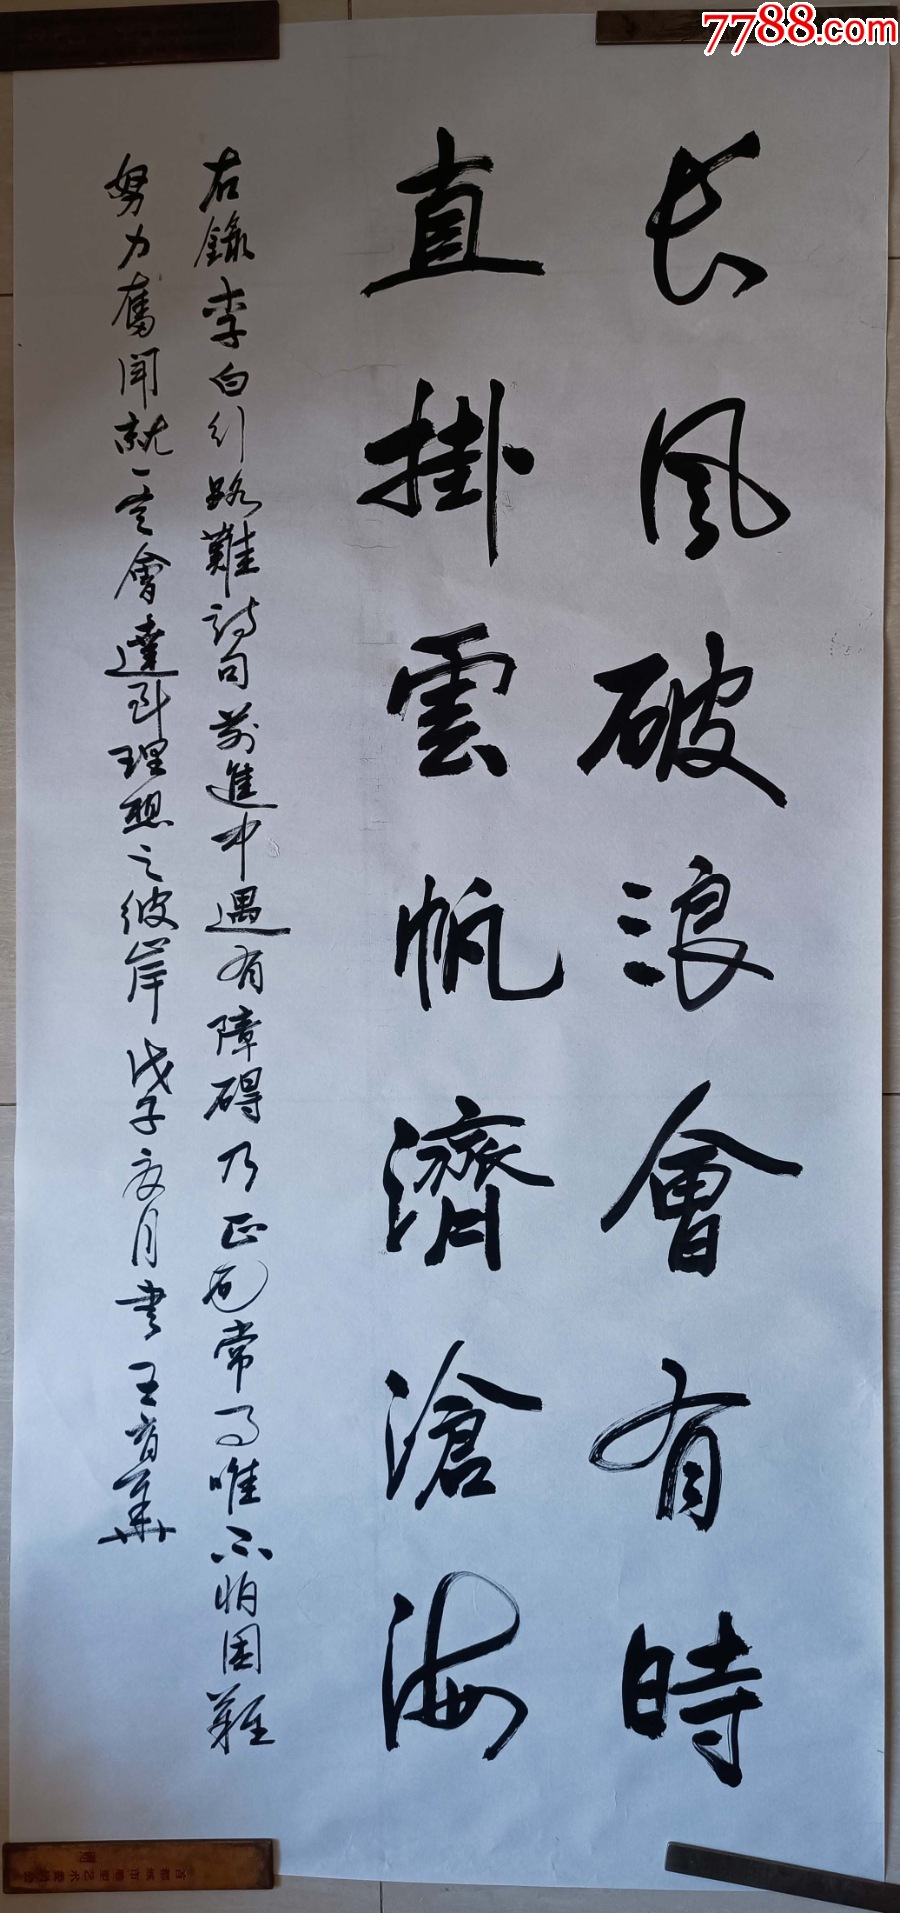 7788.com
长風破浪會有時
直掛雲帆濟滄海
右錄李白行路難詩句前進中遇有障碍乃正常事唯不怕困難
努力奮鬥就一定會達到理想之彼岸戊子夏月書王華
首都城市雕塑艺术委员会
赠